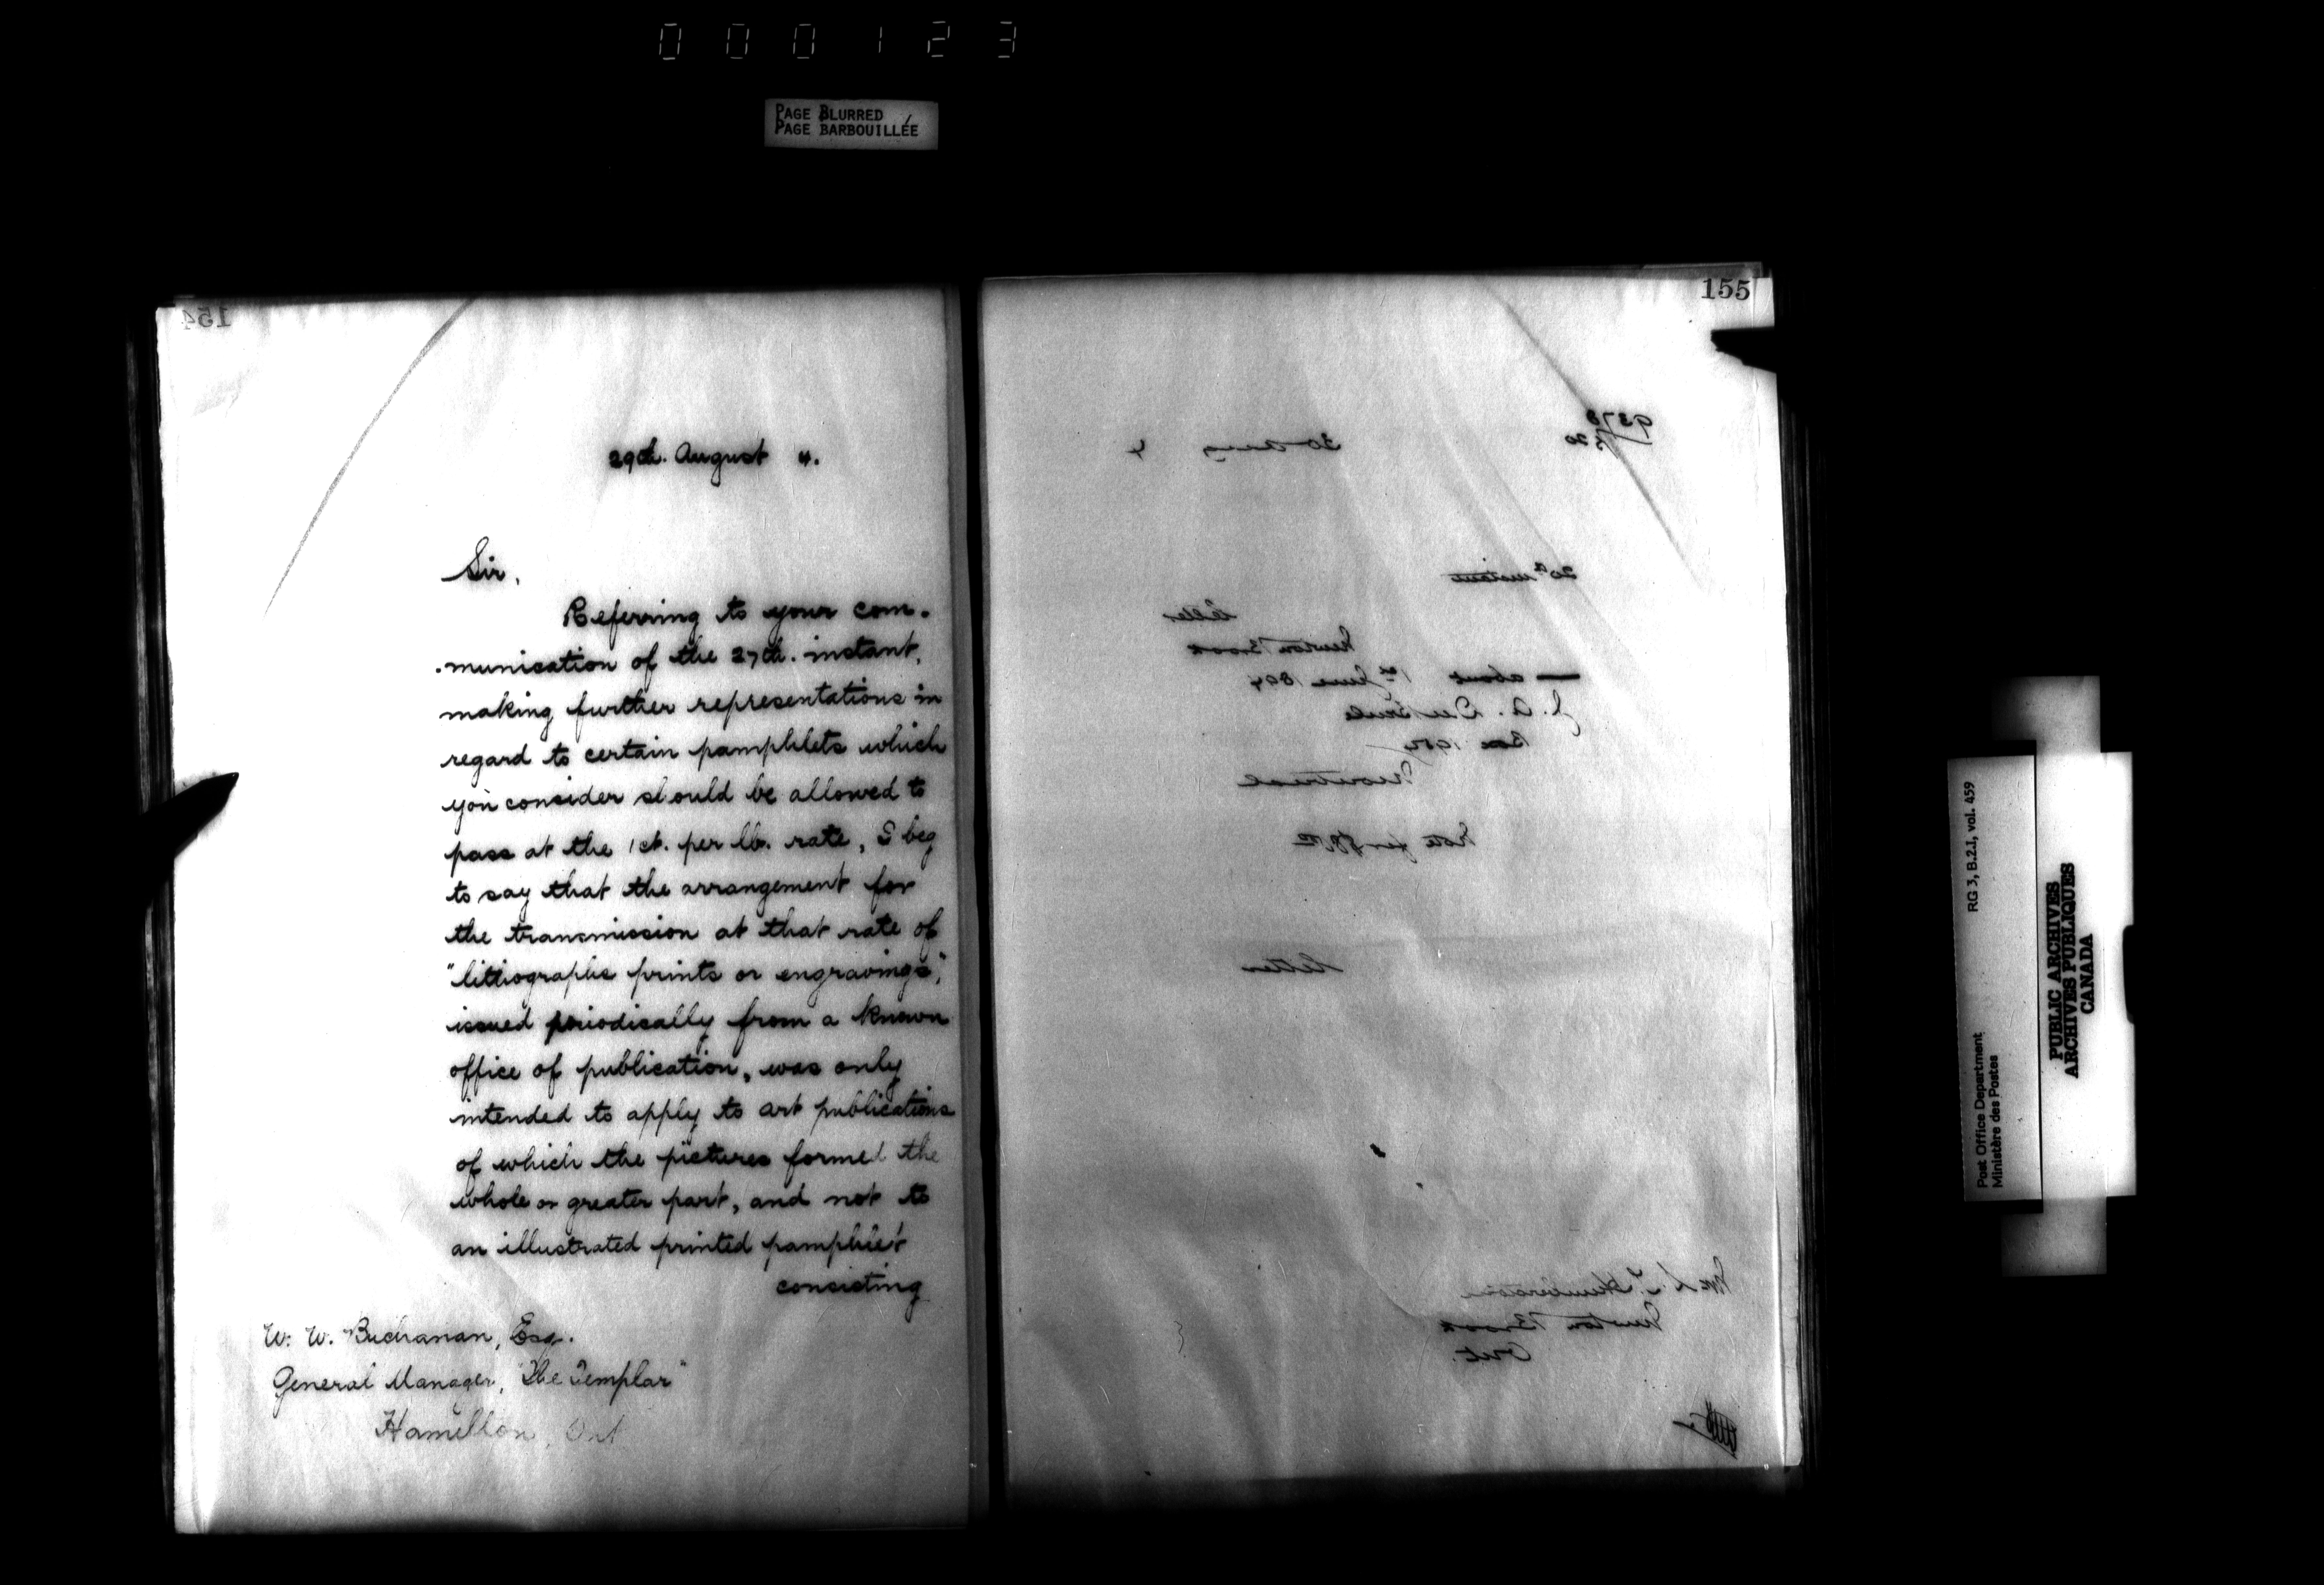 000123
PAGE BLURRED
PAGE BARBOUILLÉE
154
29th. August 4.
Sir,
Referring to your com-
-munication of the 27th. instant,
making further representations in
regard to certain pamphlets which
you consider should be allowed to
pass at the 1ct. per lb. rate, I beg
to say that the arrangement for
the transmission at that rate of
"lithographs prints or engravings,"
issued periodically from a known
office of publication, was only
intended to apply to art publications
of which the pictures formed the
whole or greater part, and not to
an illustrated printed pamphlet
consisting
W. W. Buchanan, Esq.
General Manager, "The Templar"
Hamilton, Ont
155
30 Aug 4
20th instant
letter
Newton Brook
about 1st June 1894
J. A.
Box
Montreal
letter
Newton Brook
Ont.
Post Office Department
Ministère des Postes
RG 3, B.2.I, vol. 459
PUBLIC ARCHIVES
ARCHIVES PUBLIQUES
CANADA